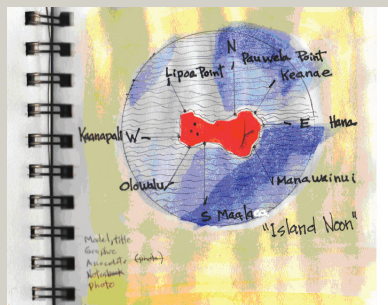 N
Pauwela Point
Lipoa Point
Keanae
Kaanapali W
E Hana
Olowalu
Manawainui
S Maala
"Island Noon"
Model, title
Graphic
(photo)
Notebook
Photo